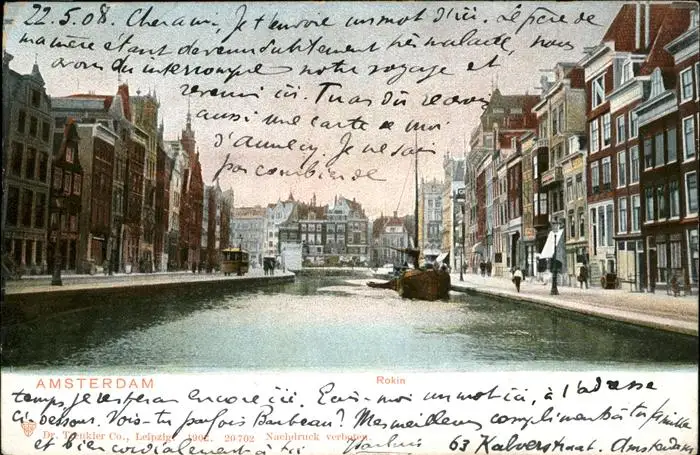 22.5.08. Cher ami, Je t'envoie un mot d'ici. Le père de
ma mère étant devenu subitement très malade, nous
avons dû interrompre notre voyage et
revenir ici. Tu as dû recevoir
aussi une carte de moi
d'Annecy. Je ne sais
pas combien de
AMSTERDAM
Rokin
temps je resterai encore ici. Ecris-moi un mot ici, à l'adresse
ci-dessous. Vois-tu parfois Barbeau? Mes meilleurs compliments à ta famille
Dr. Trenkler Co., Leipzig. 1902. 20 702 Nachdruck verboten.
et bien cordialement à toi
63 Kalverstraat. Amsterdam